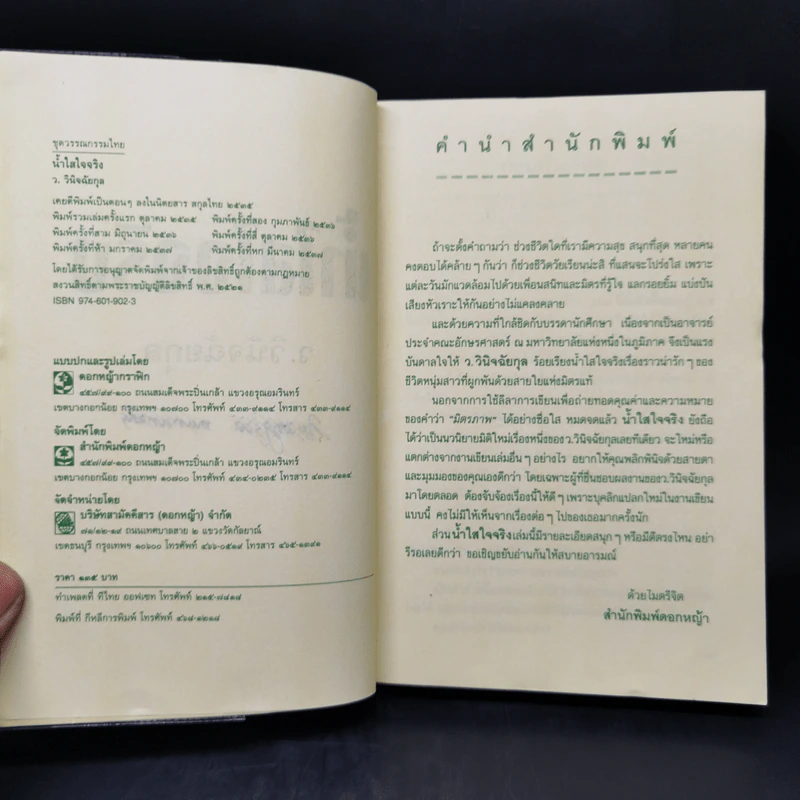 ชุดวรรณกรรมไทย
น้ำใสใจจริง
ว. วินิจฉัยกุล
เคยตีพิมพ์เป็นตอนๆ ลงในนิตยสาร สกุลไทย ๒๕๓๕
พิมพ์รวมเล่มครั้งแรก ตุลาคม ๒๕๓๕ พิมพ์ครั้งที่สอง กุมภาพันธ์ ๒๕๓๖
พิมพ์ครั้งที่สาม มิถุนายน ๒๕๓๖ พิมพ์ครั้งที่สี่ ตุลาคม ๒๕๓๖
พิมพ์ครั้งที่ห้า มกราคม ๒๕๓๗ พิมพ์ครั้งที่หก มีนาคม ๒๕๓๗
โดยได้รับการอนุญาตจัดพิมพ์จากเจ้าของลิขสิทธิ์ถูกต้องตามกฎหมาย
สงวนลิขสิทธิ์ตามพระราชบัญญัติลิขสิทธิ์ พ.ศ. ๒๕๒๑
ISBN 974-601-902-3
แบบปกและรูปเล่มโดย
ดอกหญ้ากราฟิก
๔๕๗/๙๙-๑๐๐ ถนนสมเด็จพระปิ่นเกล้า แขวงอรุณอมรินทร์
เขตบางกอกน้อย กรุงเทพฯ ๑๐๗๐๐ โทรศัพท์ ๔๓๓-๙๑๑๔ โทรสาร ๔๓๓-๙๑๑๔
จัดพิมพ์โดย
สำนักพิมพ์ดอกหญ้า
๔๕๗/๙๙-๑๐๐ ถนนสมเด็จพระปิ่นเกล้า แขวงอรุณอมรินทร์
เขตบางกอกน้อย กรุงเทพฯ ๑๐๗๐๐ โทรศัพท์ ๔๓๔-๐๒๓๕ โทรสาร ๔๓๓-๙๑๑๔
จัดจำหน่ายโดย
บริษัทสามัคคีสาร (ดอกหญ้า) จำกัด
๗๑/๑๒-๑๙ ถนนเทศบาลสาย ๒ แขวงวัดกัลยาณ์
เขตธนบุรี กรุงเทพฯ ๑๐๖๐๐ โทรศัพท์ ๔๖๖-๐๕๑๙ โทรสาร ๔๖๕-๑๓๙๑
ราคา ๑๓๕ บาท
ทำเพลทที่ ทีไทย ออฟเซท โทรศัพท์ ๒๑๕-๗๘๑๘
พิมพ์ที่ กิหลีการพิมพ์ โทรศัพท์ ๔๖๘-๑๒๑๘
คำนำสำนักพิมพ์
ถ้าจะตั้งคำถามว่า ช่วงชีวิตใดที่เรามีความสุข สนุกที่สุด หลายคน
คงตอบได้คล้ายๆ กันว่า ก็ช่วงชีวิตวัยเรียนน่ะสิ ที่แสนจะโปร่งใส เพราะ
แต่ละวันมักแวดล้อมไปด้วยเพื่อนสนิทและมิตรที่รู้ใจ แลกรอยยิ้ม แบ่งปัน
เสียงหัวเราะให้กันอย่างไม่แคลงคลาย
และด้วยความที่ใกล้ชิดกับบรรดานักศึกษา เนื่องจากเป็นอาจารย์
ประจำคณะอักษรศาสตร์ ณ มหาวิทยาลัยแห่งหนึ่งในภูมิภาค จึงเป็นแรง
บันดาลใจให้ ว.วินิจฉัยกุล ร้อยเรียงน้ำใสใจจริงเรื่องราวน่ารักๆ ของ
ชีวิตหนุ่มสาวที่ผูกพันด้วยสายใยแห่งมิตรแท้
นอกจากการใช้ลีลาการเขียนเพื่อถ่ายทอดคุณค่าและความหมาย
ของคำว่า "มิตรภาพ" ได้อย่างซื่อใส หมดจดแล้ว น้ำใสใจจริง ยังถือ
ได้ว่าเป็นนวนิยายมิติใหม่เรื่องหนึ่งของว.วินิจฉัยกุลเลยทีเดียว จะใหม่หรือ
แตกต่างจากงานเขียนเล่มอื่นๆ อย่างไร อยากให้คุณพลิกพินิจด้วยสายตา
และมุมมองของคุณเองดีกว่า โดยเฉพาะผู้ที่ชื่นชอบผลงานของว.วินิจฉัยกุล
มาโดยตลอด ต้องจับจ้องเรื่องนี้ให้ดีๆ เพราะบุคลิกแปลกใหม่ในงานเขียน
แบบนี้ คงไม่มีให้เห็นจากเรื่องต่อๆ ไปของเธอมากครั้งนัก
ส่วนน้ำใสใจจริงเล่มนี้มีรายละเอียดสนุกๆ หรือมีดีตรงไหน อย่า
รีรอเลยดีกว่า ขอเชิญขยับอ่านกันให้สบายอารมณ์
ด้วยไมตรีจิต
สำนักพิมพ์ดอกหญ้า